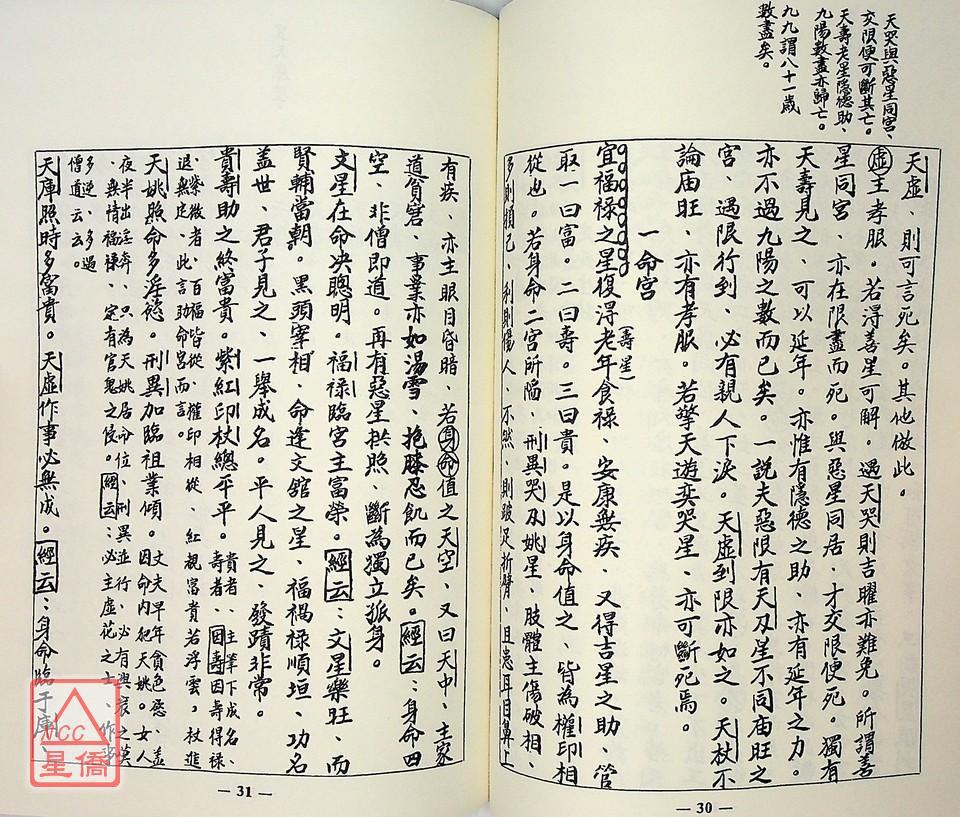 天哭與惡星同宮、
交限便可斷其亡。
天壽老星隱德助、
九陽數盡亦歸亡。
九九謂八十一歲
數盡矣。
天虛、則可言死矣。其他倣此。
虛主孝服。若得善星可解。遇天哭則吉曜亦難免。所謂善
星同宮、亦在限盡而死。與惡星同居、才交限便死。獨有
天壽見之、可以延年。亦惟有隱德之助、亦有延年之力。
亦不過九陽之數而已矣。一說夫惡限有天刃星不同庙旺之
宮、遇限行到、必有親人下淚。天虛到限亦如之。天杖不
論庙旺、亦有孝服。若擎天遊奕哭星、亦可斷死焉。
一命宮
宜福禄之星復得老年食禄、安康無疾、又得吉星之助、管
(壽星)
取一曰富。二曰壽。三曰貴。是以身命值之、皆為權印相
從也。若身命二宮所陷、刑異哭刃姚星、肢體主傷破相、
多則損己、利則傷人、不然、則跛足折臂、且患耳目鼻上
— 30 —
有疾、亦主眼目昏暗、若身命值之天空、又曰天中、主家
道貧窘、事業亦如湯雪、抱膝忍飢而已矣。經云：身命四
空、非僧即道。再有惡星拱照、斷為獨立孤身。
文星在命决聰明。福禄臨宮主富榮。經云：文星樂旺、而
賢輔當朝。黑頭宰相、命逢文舘之星、福禍禄順垣、功名
蓋世、君子見之、一舉成名。平人見之、發蹟非常。
貴壽助之終富貴。紫紅印杖總平平。
貴者、主筆下成名、
壽者、因壽因壽得禄、
紫微者、百福皆從、權印相從、紅視富貴若浮雲，杖進
退無定、此言助命宮而言。
天姚照命多淫慾。刑異加臨祖業傾。
丈夫早年貪色慾、蓋
因命內犯天姚。女人
夜半出淫奔、只為天姚居分位、刑異並行、必有興衰之莫
、無情福禄、定有官鬼之侵。經云：必主虛花之士、作事
多逆、多遇
僧道云云。
天庫照時多富貴。天虛作事必無成。經云：身命臨于庫、
— 31 —
NCC
星僑